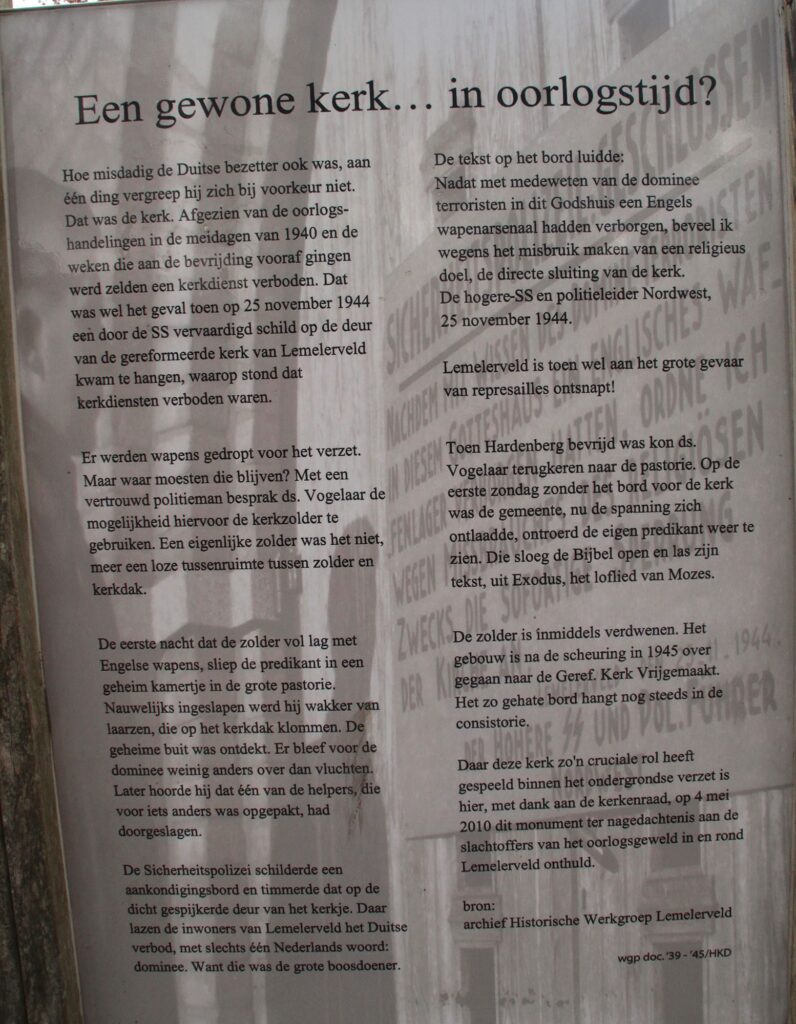 Een gewone kerk… in oorlogstijd?
Hoe misdadig de Duitse bezetter ook was, aan
één ding vergreep hij zich bij voorkeur niet.
Dat was de kerk. Afgezien van de oorlogs-
handelingen in de meidagen van 1940 en de
weken die aan de bevrijding vooraf gingen
werd zelden een kerkdienst verboden. Dat
was wel het geval toen op 25 november 1944
een door de SS vervaardigd schild op de deur
van de gereformeerde kerk van Lemelerveld
kwam te hangen, waarop stond dat
kerkdiensten verboden waren.
Er werden wapens gedropt voor het verzet.
Maar waar moesten die blijven? Met een
vertrouwd politieman besprak ds. Vogelaar de
mogelijkheid hiervoor de kerkzolder te
gebruiken. Een eigenlijke zolder was het niet,
meer een loze tussenruimte tussen zolder en
kerkdak.
De eerste nacht dat de zolder vol lag met
Engelse wapens, sliep de predikant in een
geheim kamertje in de grote pastorie.
Nauwelijks ingeslapen werd hij wakker van
laarzen, die op het kerkdak klommen. De
geheime buit was ontdekt. Er bleef voor de
dominee weinig anders over dan vluchten.
Later hoorde hij dat één van de helpers, die
voor iets anders was opgepakt, had
doorgeslagen.
De Sicherheitspolizei schilderde een
aankondigingsbord en timmerde dat op de
dicht gespijkerde deur van het kerkje. Daar
lazen de inwoners van Lemelerveld het Duitse
verbod, met slechts één Nederlands woord:
dominee. Want die was de grote boosdoener.
De tekst op het bord luidde:
Nadat met medeweten van de dominee
terroristen in dit Godshuis een Engels
wapenarsenaal hadden verborgen, beveel ik
wegens het misbruik maken van een religieus
doel, de directe sluiting van de kerk.
De hogere-SS en politieleider Nordwest,
25 november 1944.
Lemelerveld is toen wel aan het grote gevaar
van represailles ontsnapt!
Toen Hardenberg bevrijd was kon ds.
Vogelaar terugkeren naar de pastorie. Op de
eerste zondag zonder het bord voor de kerk
was de gemeente, nu de spanning zich
ontlaadde, ontroerd de eigen predikant weer te
zien. Die sloeg de Bijbel open en las zijn
tekst, uit Exodus, het loflied van Mozes.
De zolder is inmiddels verdwenen. Het
gebouw is na de scheuring in 1945 over
gegaan naar de Geref. Kerk Vrijgemaakt.
Het zo gehate bord hangt nog steeds in de
consistorie.
Daar deze kerk zo'n cruciale rol heeft
gespeeld binnen het ondergrondse verzet is
hier, met dank aan de kerkenraad, op 4 mei
2010 dit monument ter nagedachtenis aan de
slachtoffers van het oorlogsgeweld in en rond
Lemelerveld onthuld.
bron:
archief Historische Werkgroep Lemelerveld
wgp doc.'39 - '45/HKD